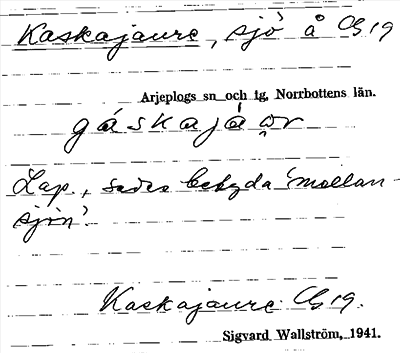 Kaskajaure, sjö å G 19
Arjeplogs sn och tg, Norrbottens län.
gáskajáu̯r
Lap., sades betyda 'mellan-
sjön'.
Kaskajaure G 19.
Sigvard Wallström, 1941.